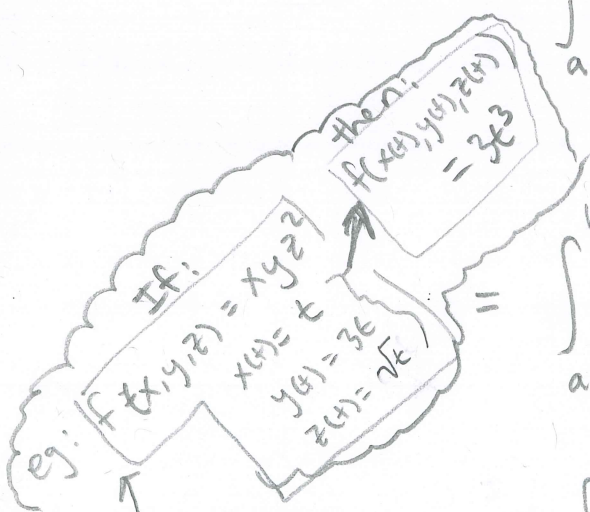 eg:
If:
f(x,y,z) = xyz²
x(t) = t
y(t) = 3t
z(t) = √t
then:
f(x(t),y(t),z(t))
= 3t³
∫
a
=
∫
a